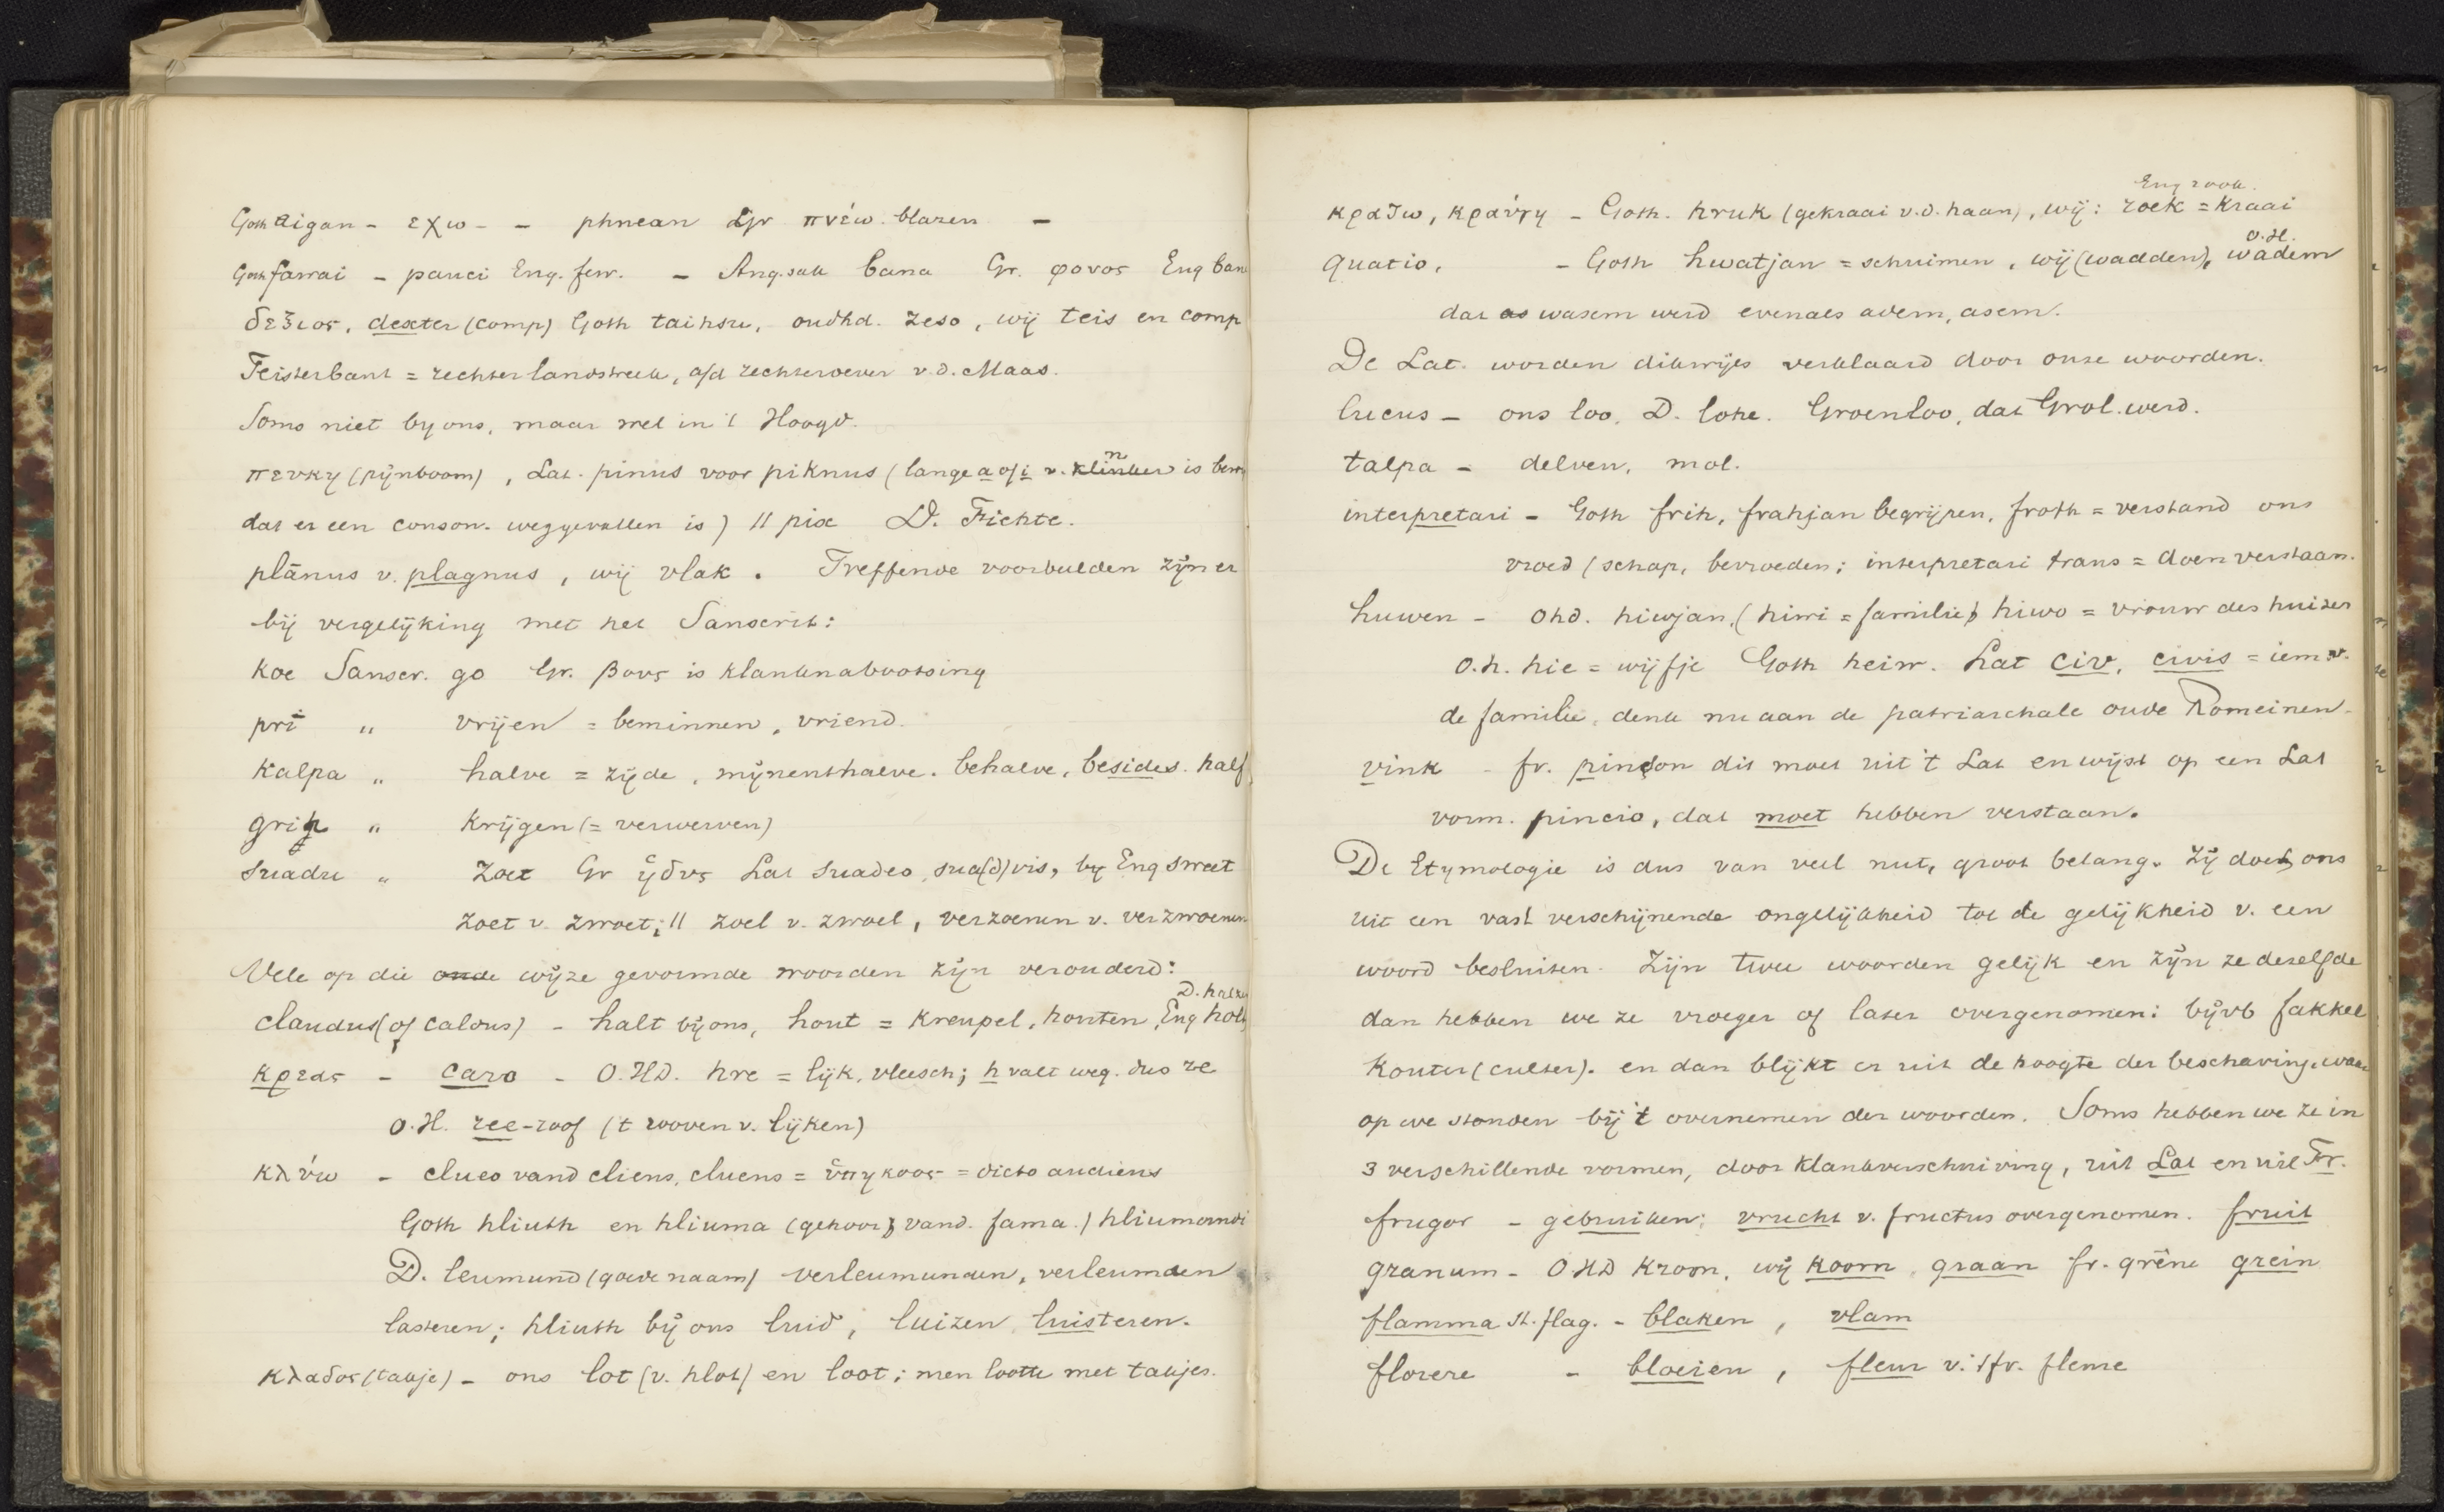 Goth aigan - εχω - - phnean Gr πνέω. blazen -
Goth fawai - pauci Eng. few. - Ang.sak bana Gr. φονος Eng ban
δεξιος, dexter (comp) Goth taihsw, oudhd. zeso, wij teis en comp
Teisterbant = rechter landstreek, a/d rechteroever v.d. Maas.
Soms niet by ons, maar wel in 't Hoogd.
πευκη (pijnboom), Lat. pinus voor piknus (lange a of i v. klinker is bew
dat er een conson. weggevallen is) || pix D. Fichte.
plānus v. plagnus, wij vlak. Treffende voorbeelden zijn er
bij vergelijking met het Sanscrit:
koe Sanscr. go Gr. βους is klanknabootsing
pri " vrijen = beminnen, vriend.
kalpa " halve = zijde, mijnenthalve. behalve, besides. half
grih " krijgen (= verwerven)
suadu " zoet Gr ἡδυς Lat suadeo, sua(d)vis, by Eng sweet
zoet v. zwoet; || zoel v. zwoel, verzoenen v. verzwoenen
Vele op die oude wijze gevormde woorden zijn verouderd:
D. halz
claudus (of caldus) - halt bij ons, hout = kreupel, houten, Eng holt
κρεας - caro - O.HD. hre = lijk, vleesch; h valt weg. dus re
O.H. ree-roof ('t rooven v. lijken)
κλύω - clueo vand cliens, cluens = ὑπηκοος = dicto audiens
Goth hliuth en hliuma (gehoor, vand. fama.) hliumondi
D. leumund (goede naam) verleumunden, verleumden
lasteren; hliuth bij ons luid, luizen, luisteren.
κλαδος (takje) - ons lot (v. hlot) en loot; men lootte met takjes.
Eng rook.
κραζω, κραύγη - Goth. hruk (gekraai v.d. haan), wij: roek = kraai
O.H.
quatio, - Goth hwatjan = schuimen, wij (wadden), wadem
dat as wasem werd evenals adem, asem.
De Lat. worden dikwijls verklaard door onze woorden.
lucus - ons loo, D. lohe. Groenloo, dat Grol werd.
talpa - delven, mol.
interpretari - Goth frih, frahjan begrijpen, froth = verstand ons
vroed (schap, bevroeden; interpretari trans = doen verstaan.
huwen - Ohd. hiwjan, (hiwi = familie) hiwo = vrouw des huizes
O.h. hie = wijfje Goth heiw. Lat civ, civis = iem v.
de familie, denk nu aan de patriarchale oude Romeinen.
vink - fr. pinçon dit moet uit 't Lat en wijst op een Lat
vorm. pincio, dat moet hebben verstaan.
De Etymologie is dus van veel nut, groot belang. Zij doet ons
uit een vast verschijnende ongelijkheid tot de gelijkheid v. een
woord besluiten. Zijn twee woorden gelijk en zijn ze dezelfde
dan hebben we ze vroeger of later overgenomen: bijvb fakkel
kouter (culter). en dan blijkt er uit de hoogte der beschaving, waar
op we stonden bij 't overnemen der woorden. Soms hebben we ze in
3 verschillende vormen, door klankverschuiving, uit Lat en uit Fr.
frugor - gebruiken; vrucht v. fructus overgenomen. fruit
granum - OHD kroon, wij koorn, graan fr. grêne grein
flamma st. flag. - blaken, vlam
florere - bloeien, fleur v. 't fr. fleure